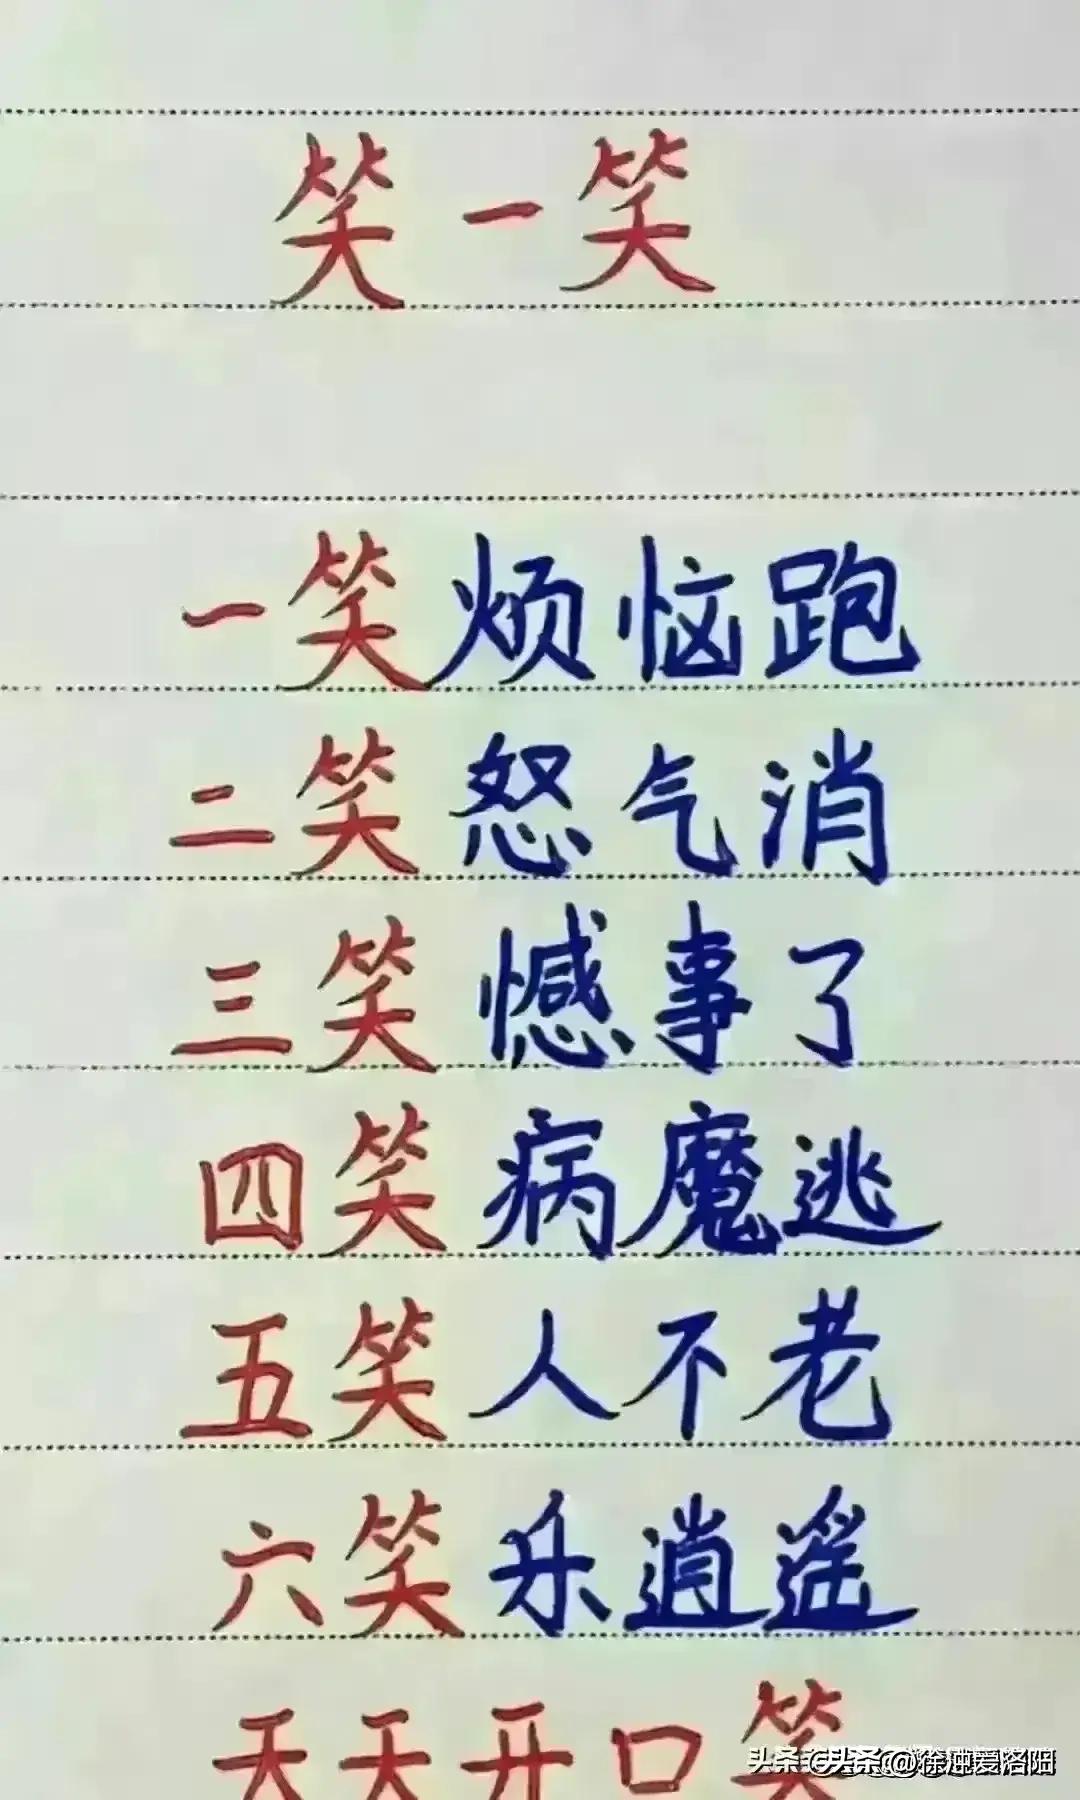 笑一笑
一笑烦恼跑
二笑怒气消
三笑憾事了
四笑病魔逃
五笑人不老
六笑乐逍遥
天天开口笑
头条 @头条 @徐 爱洛阳